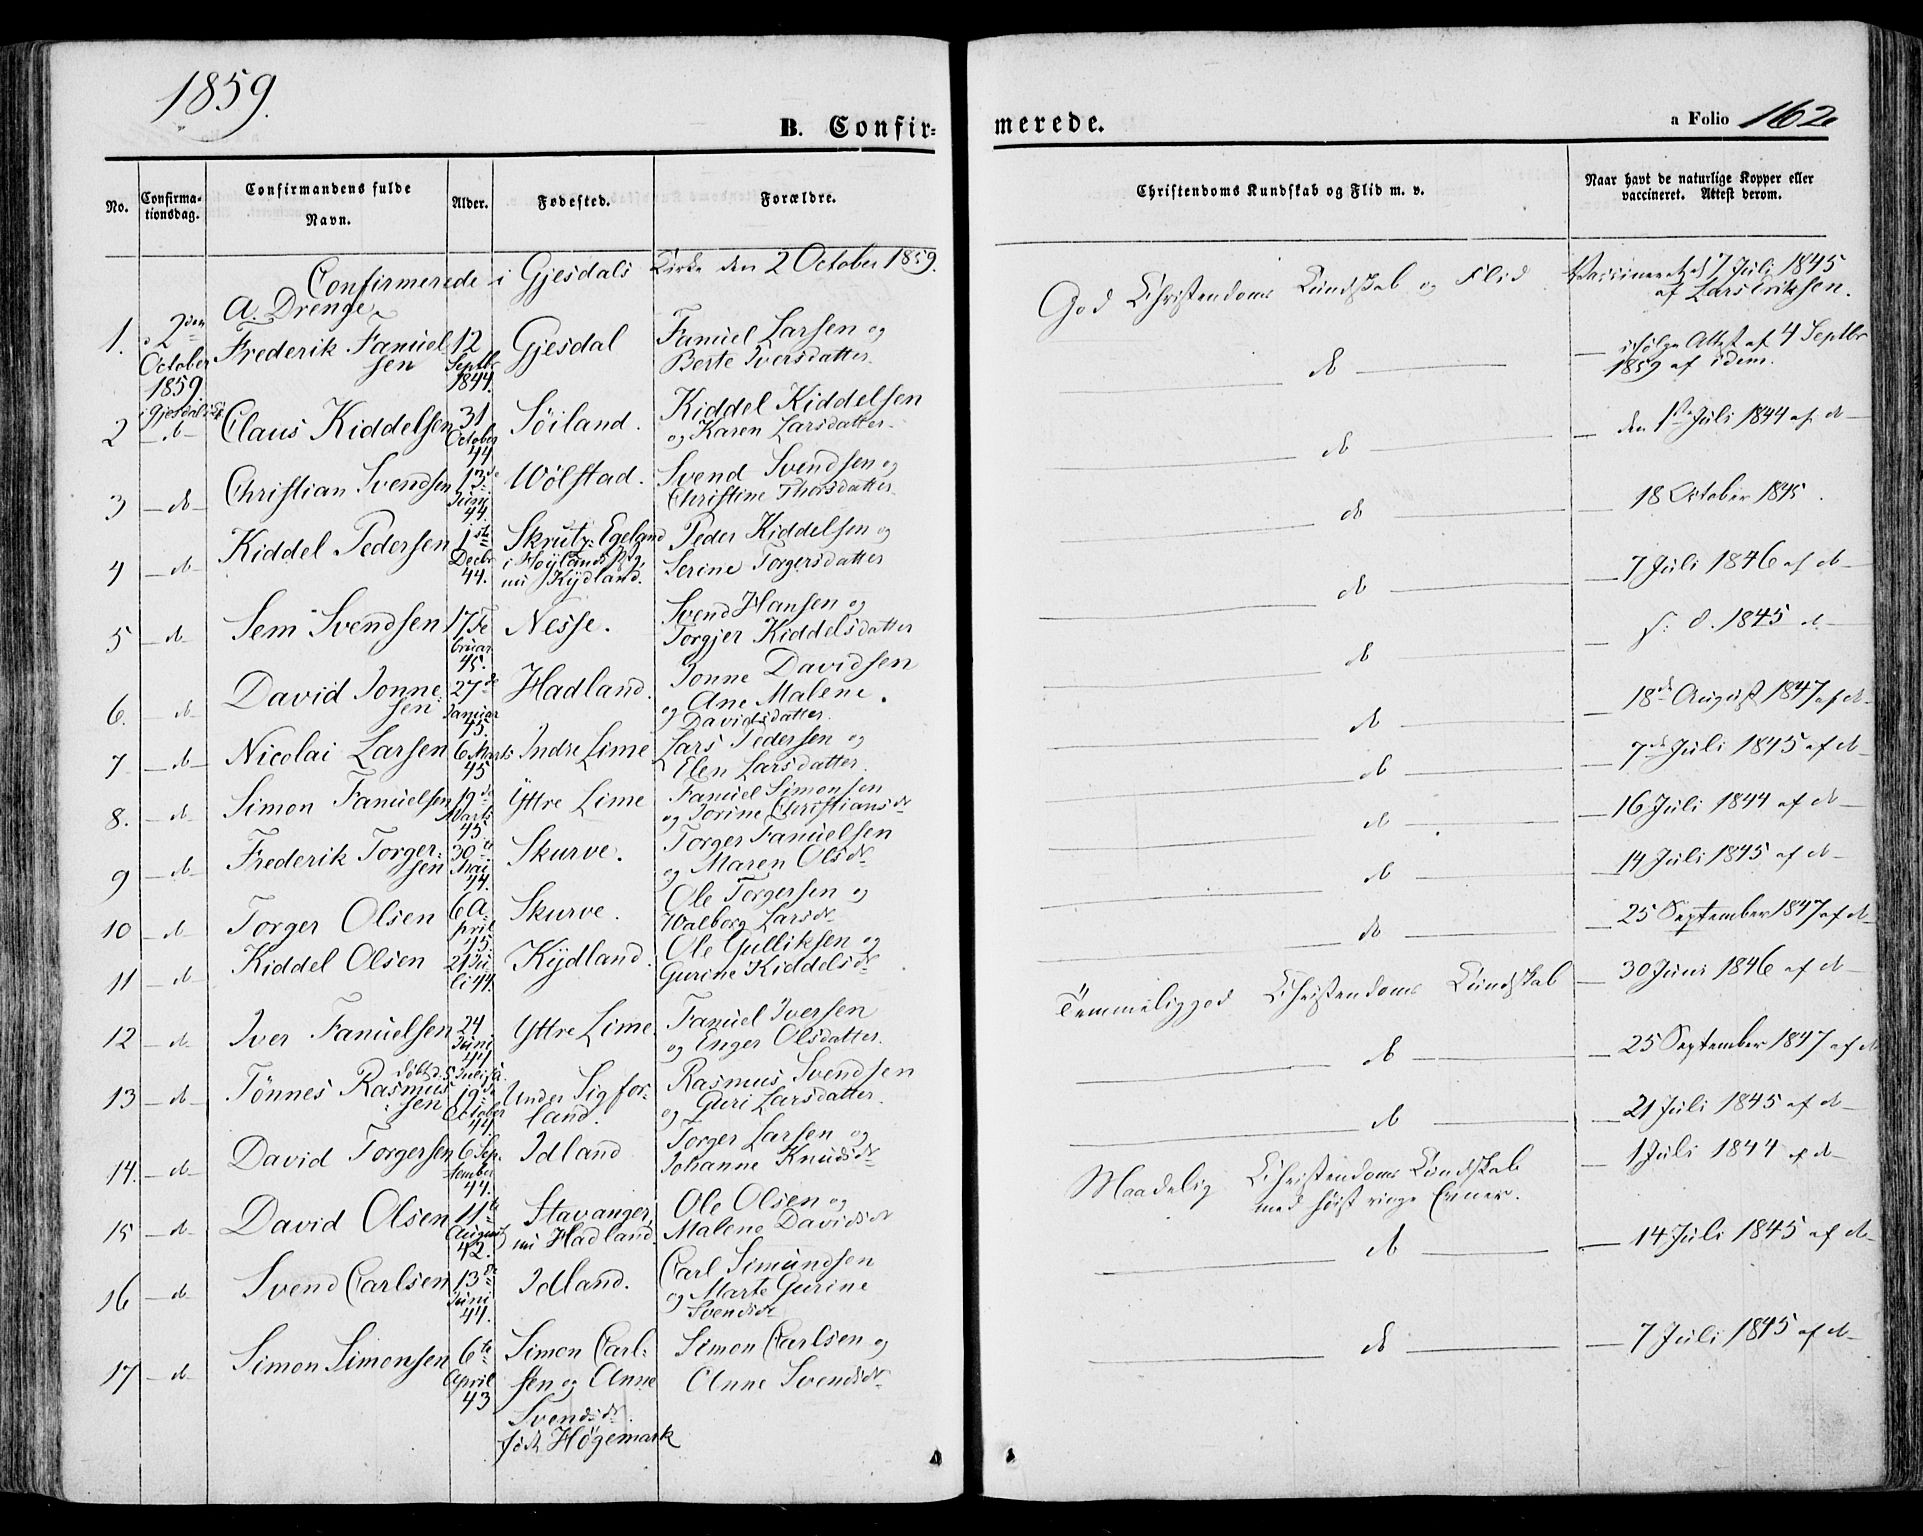 1859.
B. Confir=
merede.
a Folio 162
No.
Confirma-
tionsdag.
Confirmandens fulde
Navn.
Alder.
Fødested.
Forældre.
Christendoms Kundskab og Flid m. v.
Naar havt de naturlige Kopper eller
vaccineret. Attest derom.
Confirmerede i Gjesdals Kirke den 2 October 1859.
A. Drenge
1. 2den October 1859 i Gjesdals Frederik Fanuel sen 12 Septbr 1844. Gjesdal Fanuel Larsen og Berte Iversdatter
God Christendoms Kundskab og Flid Vaccineret d 7 Juli 1845 af Lars Eriksen. ifølge Attest af 4 Septbr 1859 af idem.
2 — do — Claus Kiddelsen 31 October 44 Søiland. Kiddel Kiddelsen og Karen Larsdatter — do — den 1ste Juli 1844 af do —
3 — do — Christian Svendsen 13de Juni 44. Wølstad. Svend Svendsen og Christine Thorsdatter — do — 18 October 1845.
4 — do — Kiddel Pedersen 1ste Decbr 44. Skrutz: Egeland i Høylands Pg, nu Kydland. Peder Kiddelsen og Serine Torgersdatter — do — 7 Juli 1846 af do —
5 — do — Sem Svendsen 17 Fe bruar 45. Nesse. Svend Hansen og Torgjer Kiddelsdatter — do — 1845 d —
6. — do — David Jonne sen 27de Januar 45. Hadland. Jonne Davidsen og Ane Malene Davidsdatter. — do — 18de August 1847 af do —
7 — do — Nicolai Larsen 6 Marts 45 Indre Lime Lars Pedersen og Elen Larsdatter. — do — 7de Juli 1845 af do —
8. — do — Simon Fanuelsen 19de Marts 45 Yttre Lime Fanuel Simonsen og Torine Christiansdr — do — 16 Juli 1844 af do —
9 — do — Frederik Torger: sen 30te Mai 44. Skurve. Torger Fanuelsen og Maren Olsdr — do — 14 Juli 1845 af do —
10 — do — Torger Olsen 6 A pril 45. Skurve. Ole Torgersen og Walborg Larsdr — do — 25 September 1847 af do —
11 — do — Kiddel Olsen 21 Ju li 44. Kydland. Ole Gulliksen og Gurine Kiddelsdr Temmelig god Christendoms Kundskab — 30 Juni 1846 af do —
12 — do — Iver Fanuelsen 24 Juni 44 Yttre Lime. Fanuel Iversen og Enger Olsdatter. — do — 25 September 1847 af do
13 — do — Tønnes Rasmus sen 19de October 44. Under Sigfor- land. Rasmus Svendsen og Guri Larsdatter. — do — 21 Juli 1845 af do —
14. — do — David Torgersen 6 Sep. tember 44. Idland Torger Larsen og Johanne Knudsdr Maadelig Christendoms Kundskab med høist ringe Evner. — 1 Juli 1844 af do —
15 — do — David Olsen 11te August 42. Stavanger, nu Hadland. Ole Olsen og Malene Davidsdr — do — 14 Juli 1845 af do —
16 — do — Svend Carlsen 13de Juni 44. Idland. Carl Simundsen og Marte Gurine Svendsdr
17 — do — Simon Simonsen 6te April 43 Simon Carl- sen og Anne Svendsdr. født Høgemark Simon Carlsen og Anne Svendsdr — do — 7 Juli 1845 af do —